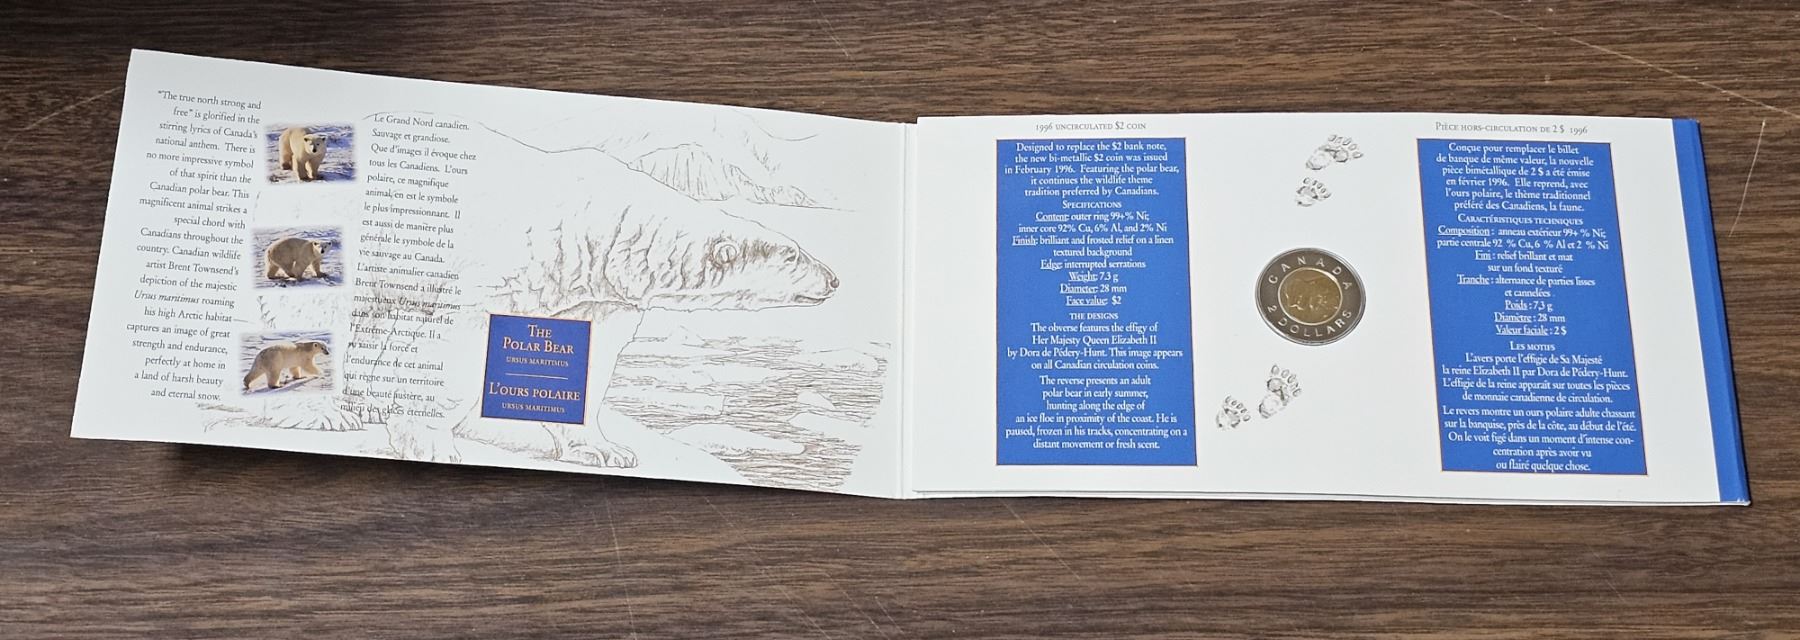 "The true north strong and
free" is glorified in the
stirring lyrics of Canada's
national anthem. There is
no more impressive symbol
of that spirit than the
Canadian polar bear. This
magnificent animal strikes a
special chord with
Canadians throughout the
country. Canadian wildlife
artist Brent Townsend's
depiction of the majestic
Ursus maritimus roaming
his high Arctic habitat
captures an image of great
strength and endurance,
perfectly at home in
a land of harsh beauty
and eternal snow.
Le Grand Nord canadien.
Sauvage et grandiose.
Que d'images il évoque chez
tous les Canadiens. L'ours
polaire, ce magnifique
animal, en est le symbole
le plus impressionnant. Il
est aussi de manière plus
générale le symbole de la
vie sauvage au Canada.
L'artiste animalier canadien
Brent Townsend a illustré le
majestueux Ursus maritimus
dans son habitat naturel de
l'Extrême-Arctique. Il a
su saisir la force et
l'endurance de cet animal
qui règne sur un territoire
d'une beauté austère, au
milieu des glaces éternelles.
THE
POLAR BEAR
URSUS MARITIMUS
L'OURS POLAIRE
URSUS MARITIMUS
1996 UNCIRCULATED $2 COIN
Designed to replace the $2 bank note,
the new bi-metallic $2 coin was issued
in February 1996. Featuring the polar bear,
it continues the wildlife theme
tradition preferred by Canadians.
SPECIFICATIONS
Content: outer ring 99+% Ni;
inner core 92% Cu, 6% Al, and 2% Ni
Finish: brilliant and frosted relief on a linen
textured background
Edge: interrupted serrations
Weight: 7.3 g
Diameter: 28 mm
Face value: $2
THE DESIGNS
The obverse features the effigy of
Her Majesty Queen Elizabeth II
by Dora de Pédery-Hunt. This image appears
on all Canadian circulation coins.
The reverse presents an adult
polar bear in early summer,
hunting along the edge of
an ice floe in proximity of the coast. He is
paused, frozen in his tracks, concentrating on a
distant movement or fresh scent.
CANADA
2 DOLLARS
PIÈCE HORS-CIRCULATION DE 2 $ 1996
Conçue pour remplacer le billet
de banque de même valeur, la nouvelle
pièce bimétallique de 2 $ a été émise
en février 1996. Elle reprend, avec
l'ours polaire, le thème traditionnel
préféré des Canadiens, la faune.
CARACTÉRISTIQUES TECHNIQUES
Composition : anneau extérieur 99+ % Ni;
partie centrale 92 % Cu, 6 % Al et 2 % Ni
Fini : relief brillant et mat
sur un fond texturé
Tranche : alternance de parties lisses
et cannelées
Poids : 7,3 g
Diamètre : 28 mm
Valeur faciale : 2 $
LES MOTIFS
L'avers porte l'effigie de Sa Majesté
la reine Elizabeth II par Dora de Pédery-Hunt.
L'effigie de la reine apparaît sur toutes les pièces
de monnaie canadienne de circulation.
Le revers montre un ours polaire adulte chassant
sur la banquise, près de la côte, au début de l'été.
On le voit figé dans un moment d'intense con-
centration après avoir vu
ou flairé quelque chose.